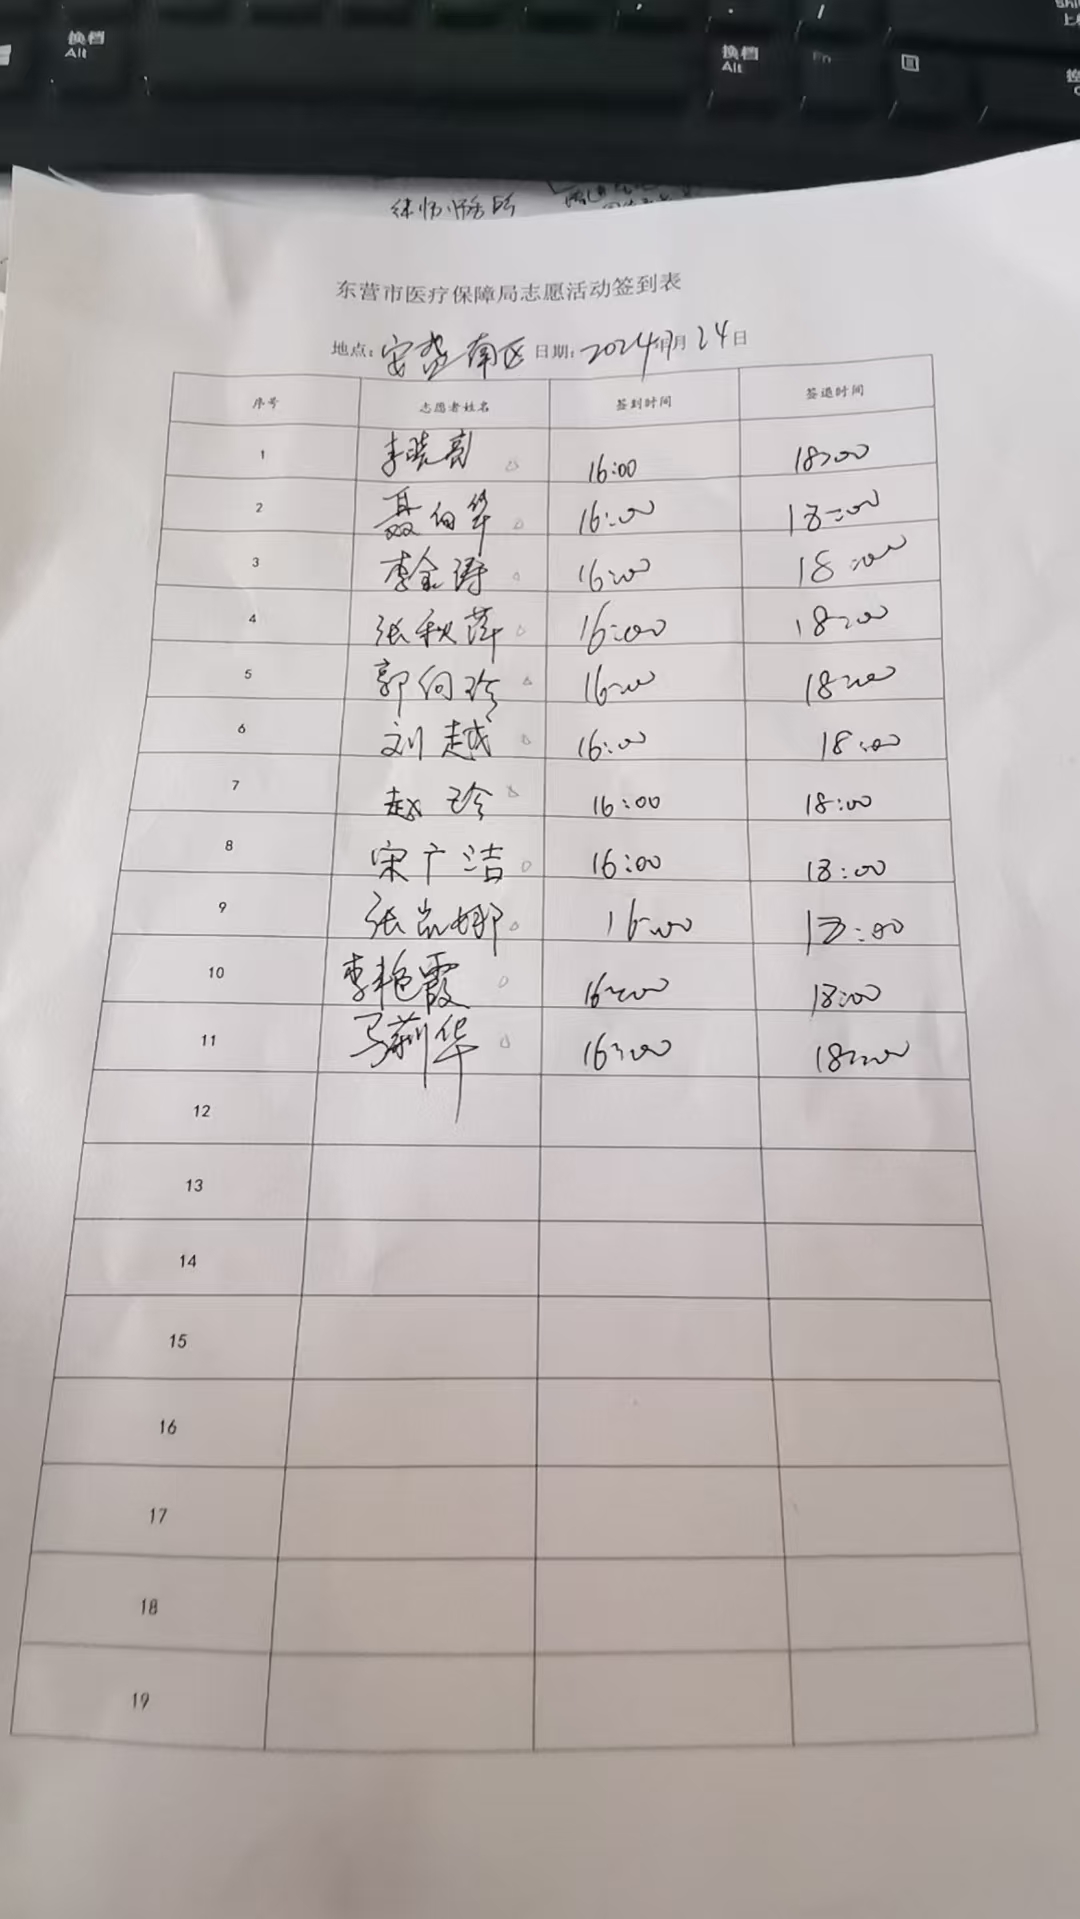 换档
Alt
换档
Alt
Fn
东营市医疗保障局志愿活动签到表
地点:安盘南区 日期:2024年7月24日
序号 志愿者姓名 签到时间 签退时间
1 李晓亮 16:00 18:00
2 聂向华 16:00 18:00
3 李金涛 16:00 18:00
4 张秋萍 16:00 18:00
5 郭向珍 16:00 18:00
6 刘越 16:00 18:00
7 赵珍 16:00 18:00
8 宋广洁 16:00 18:00
9 张岚娜 16:00 18:00
10 李艳霞 16:00 18:00
11 马莉华 16:00 18:00
12
13
14
15
16
17
18
19